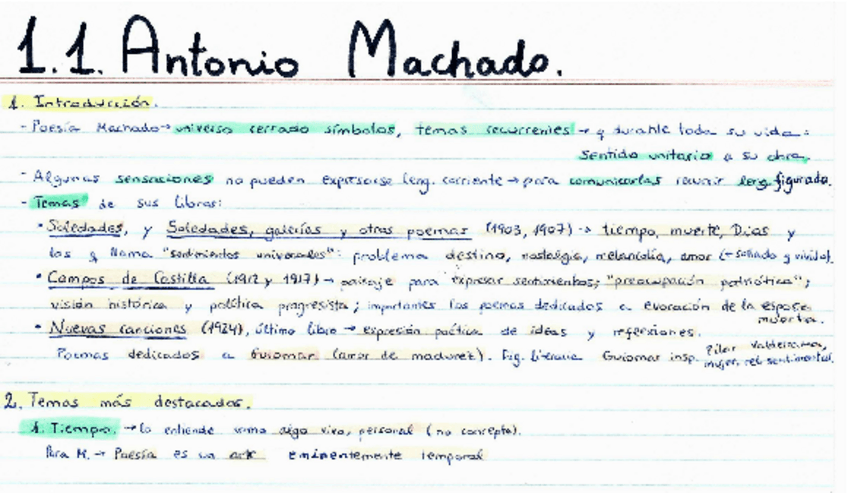 1.1. Antonio Machado.
1. Introducción.
- Poesía Machado → universo cerrado símbolos, temas recurrentes → q durante toda su vida:
sentido unitario a su obra.
- Algunas sensaciones no pueden expresarse leng. corriente → para comunicarlas recurrir leng. figurado.
- Temas de sus libros:
• Soledades, y Soledades, galerías y otros poemas (1903, 1907) → tiempo, muerte, Dios y
los q llama "sentimientos universales": problema destino, nostalgia, melancolía, amor (+ soñado q vivido).
• Campos de Castilla (1912 y 1917) → paisaje para expresar sentimientos; "preocupación patriótica";
visión histórica y política progresista; importantes los poemas dedicados a evocación de la esposa
muerta.
• Nuevas canciones (1924), último libro → expresión poética de ideas y reflexiones.
Poemas dedicados a Guiomar (amor de madurez). Fig. literaria Guiomar insp. Pilar Valderrama,
mujer, rel. sentimental.
2. Temas más destacados.
1. Tiempo. → lo entiende como algo vivo, personal (no concepto).
Para M. → Poesía es un arte eminentemente temporal